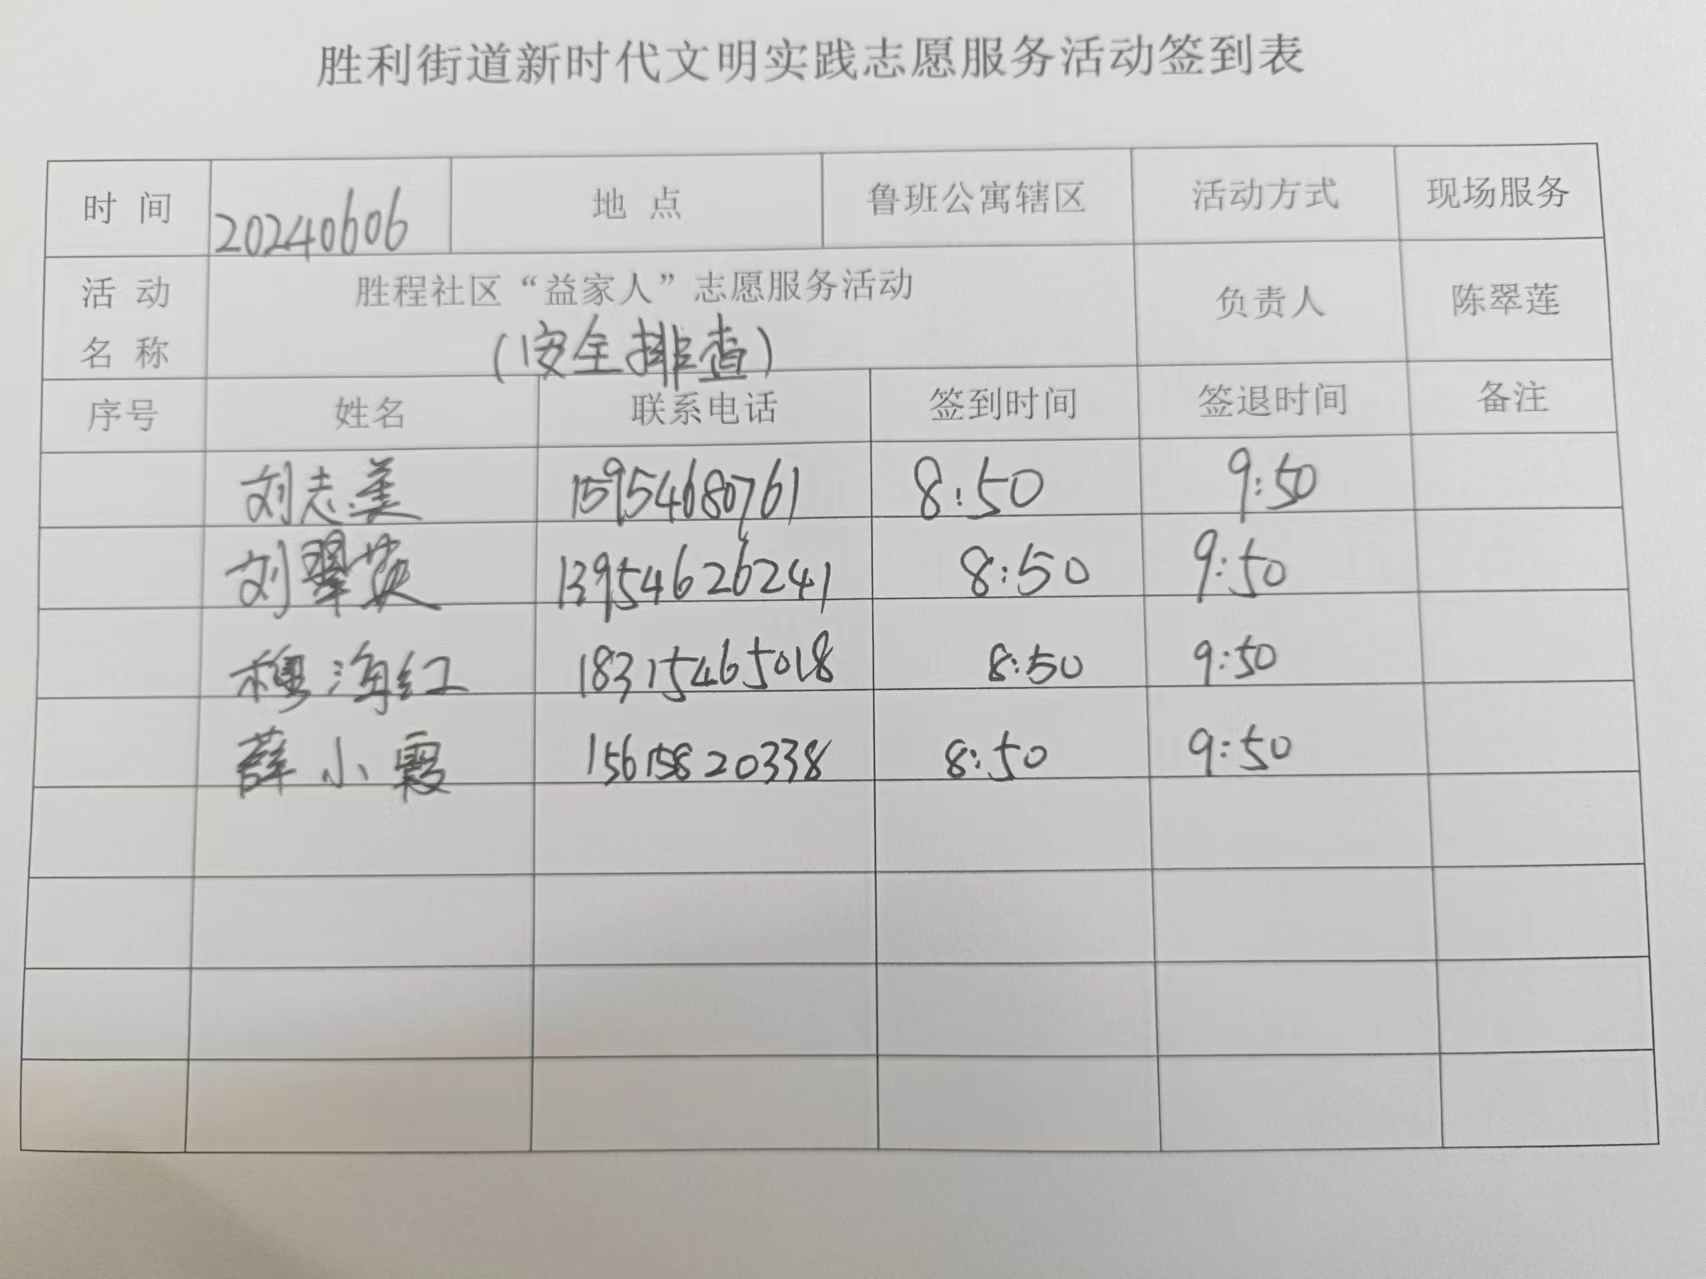 胜利街道新时代文明实践志愿服务活动签到表
时 间 20240606 地 点 鲁班公寓辖区 活动方式 现场服务
活 动 名 称 胜程社区“益家人”志愿服务活动 负责人 陈翠莲
(安全排查)
序号 姓名 联系电话 签到时间 签退时间 备注
刘志美 15954680761 8:50 9:50
刘翠英 13954626241 8:50 9:50
穆海红 18315465018 8:50 9:50
薛小霞 15615820338 8:50 9:50